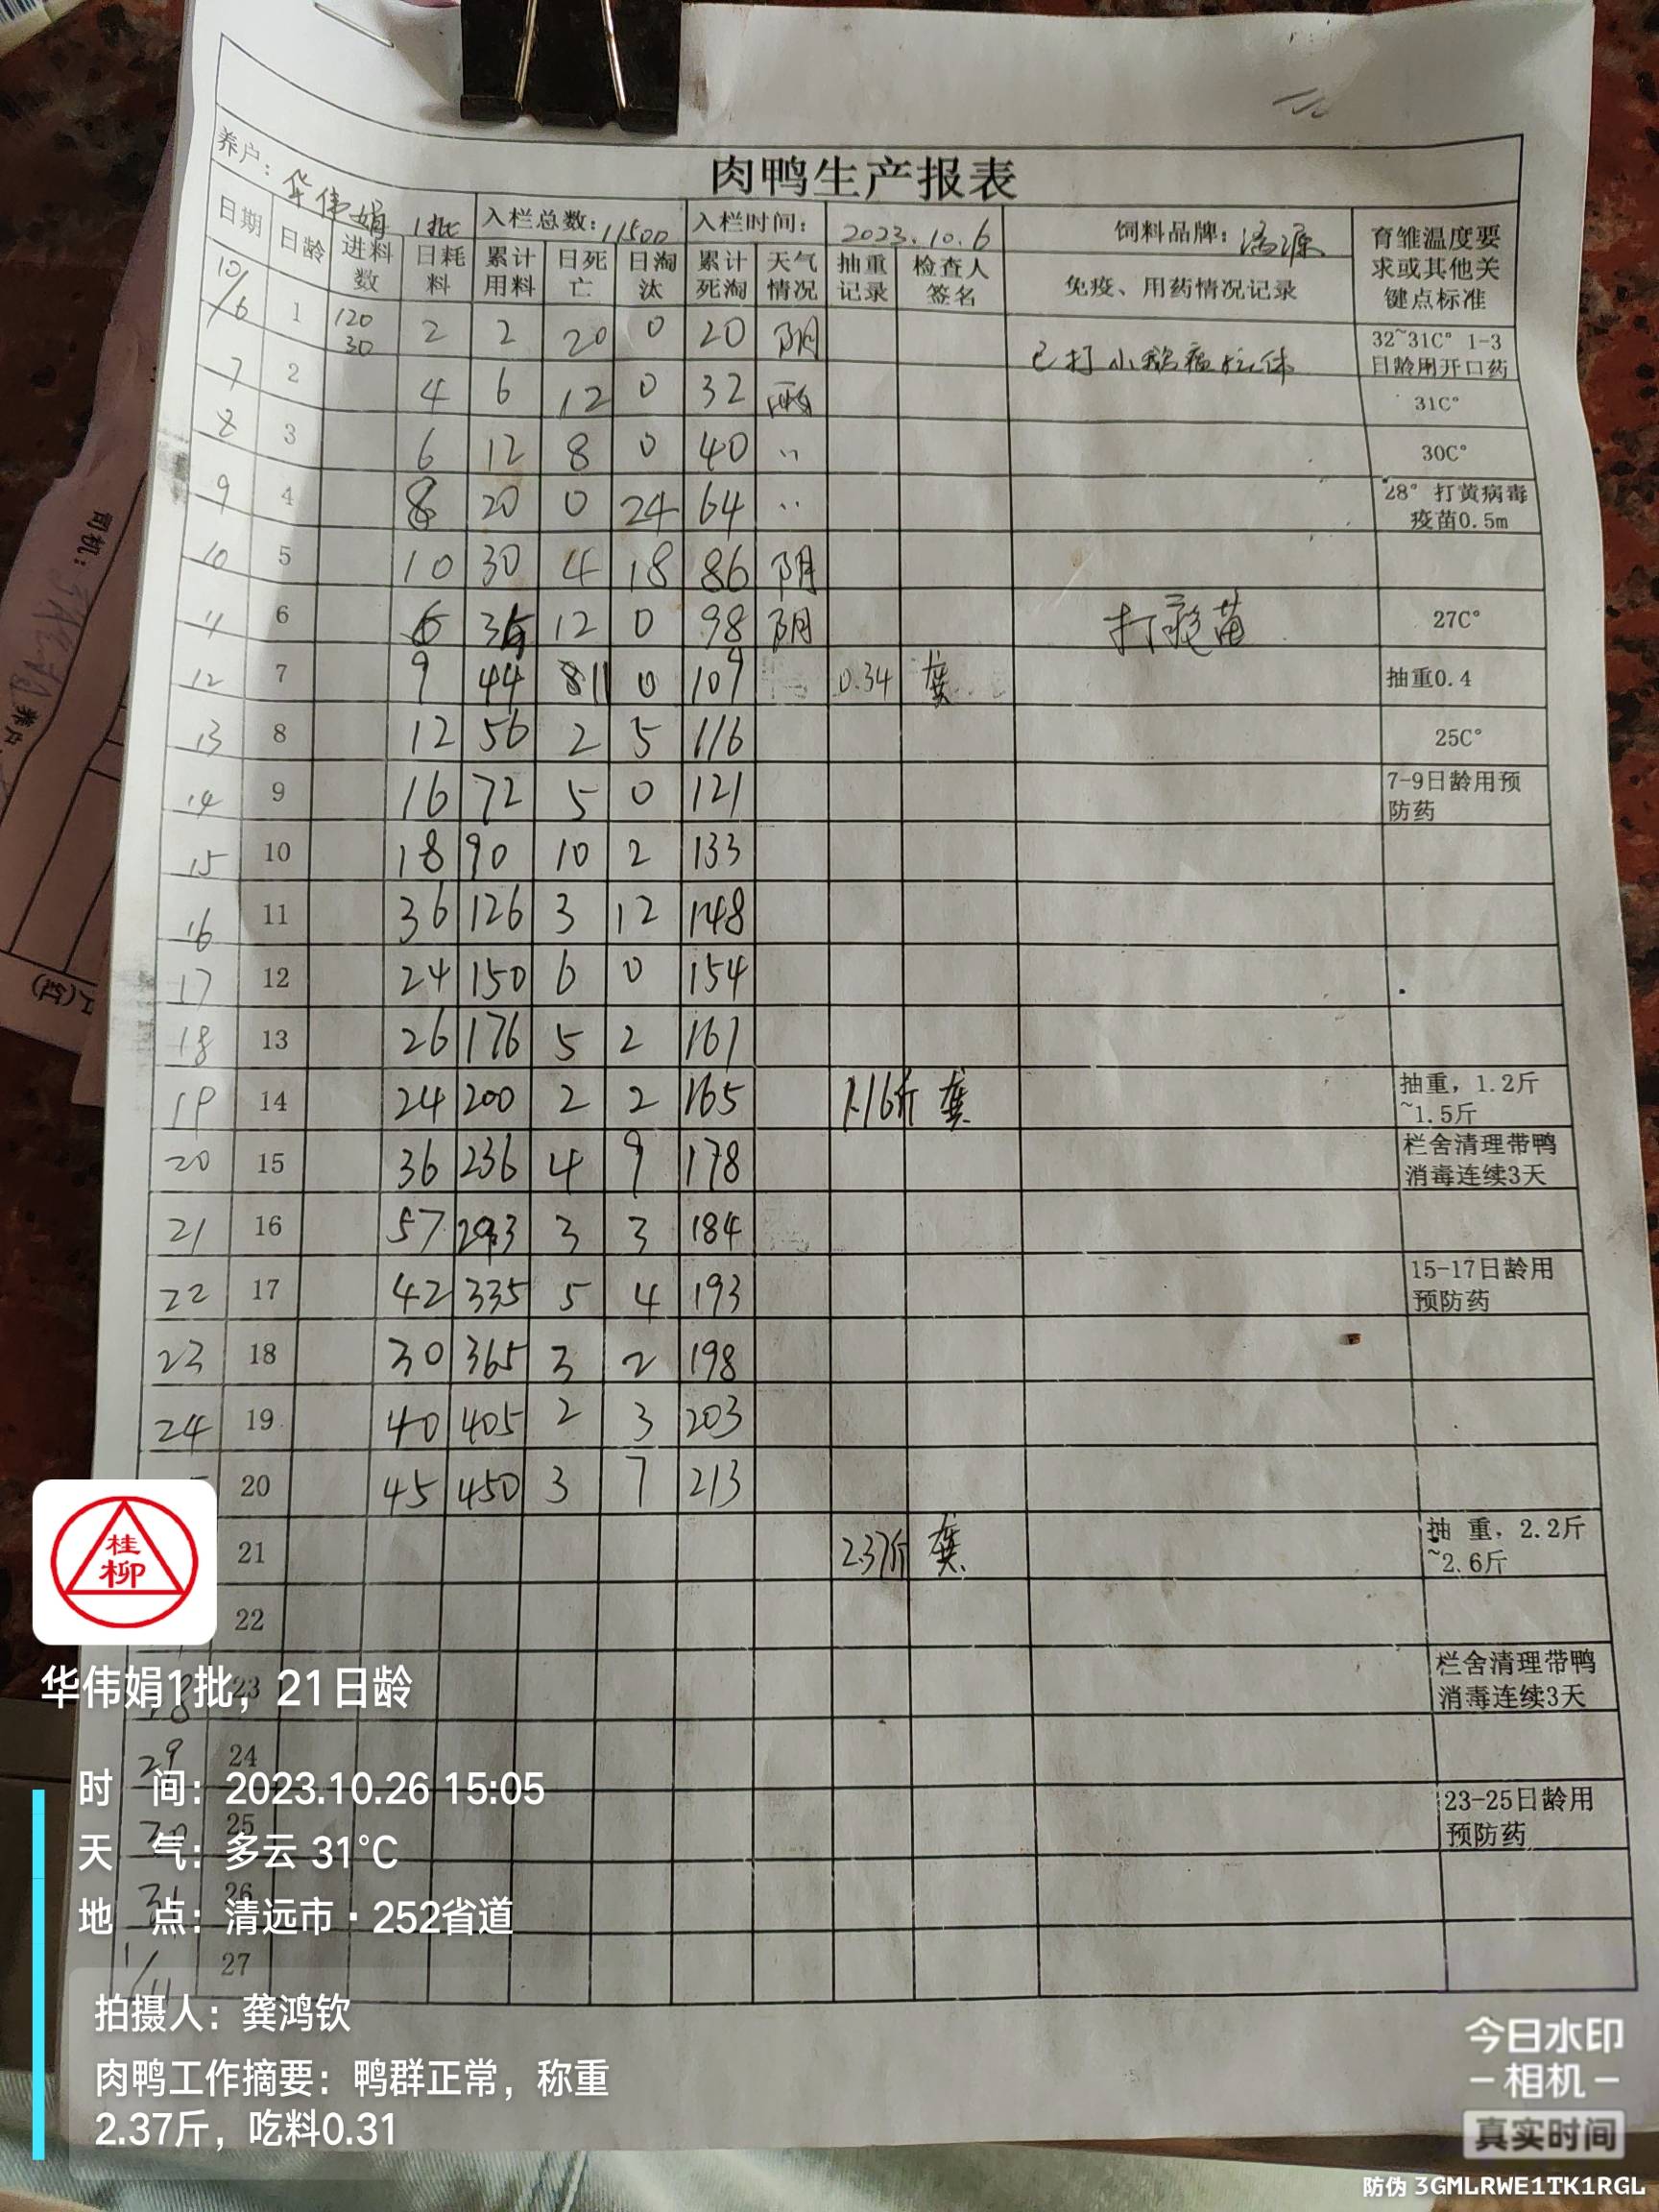 肉鸭生产报表
养户：华伟娟 1批 入栏总数：11500 入栏时间：2023.10.6 饲料品牌： 育雏温度要求或其他关键点标准
日期 日龄 进料数 日耗料 累计用料 日死亡 日淘汰 累计死淘 天气情况 抽重记录 检查人签名 免疫、用药情况记录
10/6 1 120 30 2 2 20 0 20 阴 已打小鹅瘟抗体 32~31C° 1-3日龄用开口药
7 2 4 6 12 0 32 雨 31C°
8 3 6 12 8 0 40 〃 30C°
9 4 8 20 0 24 64 〃 28° 打黄病毒疫苗0.5m
10 5 10 30 4 18 86 阴
11 6 6 35 12 0 98 阴 打疫苗 27C°
12 7 9 44 11 0 109 0.34 龚 抽重0.4
13 8 12 56 2 5 116 25C°
14 9 16 72 5 0 121 7-9日龄用预防药
15 10 18 90 10 2 133
16 11 36 126 3 12 148
17 12 24 150 6 0 154
18 13 26 176 5 2 161
19 14 24 200 2 2 165 1.16斤 龚 抽重，1.2斤~1.5斤
20 15 36 236 4 9 178 栏舍清理带鸭消毒连续3天
21 16 57 293 3 3 184
22 17 42 335 5 4 193 15-17日龄用预防药
23 18 30 365 3 2 198
24 19 40 405 2 3 203
20 45 450 3 7 213
21 2.37斤 龚 抽 重，2.2斤~2.6斤
22
23 栏舍清理带鸭消毒连续3天
29 24
30 25 23-25日龄用预防药
31 26
1/11 27
司机：
养户
(红)
桂柳
华伟娟1批，21日龄
时 间：2023.10.26 15:05
天 气：多云 31℃
地 点：清远市·252省道
拍摄人：龚鸿钦
肉鸭工作摘要：鸭群正常，称重
2.37斤，吃料0.31
今日水印
-相机-
真实时间
防伪 3GMLRWE1TK1RGL